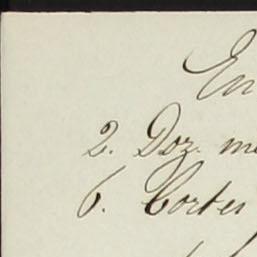 En
2. Doz. me
6. Cortes